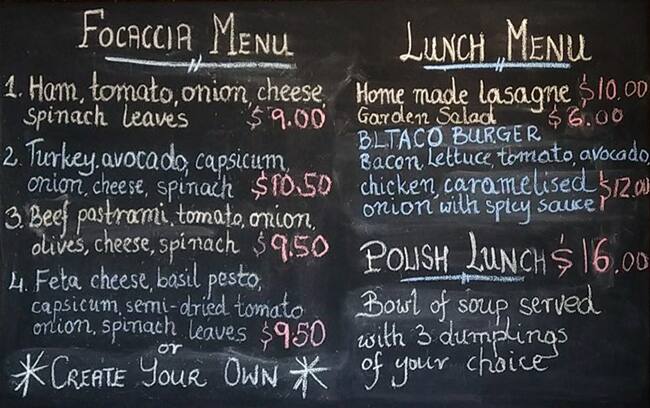 FOCACCIA MENU
1. Ham, tomato, onion, cheese,
spinach leaves $9.00
2. Turkey, avocado, capsicum,
onion, cheese, spinach $10.50
3. Beef pastrami, tomato, onion,
olives, cheese, spinach $9.50
4. Feta cheese, basil pesto,
capsicum, semi-dried tomato
onion, spinach leaves $9.50
or
CREATE YOUR OWN
LUNCH MENU
Home made lasagne $10.00
Garden Salad $6.00
BLTACO BURGER
Bacon, lettuce, tomato, avocado,
chicken, caramelised $12.00
onion with spicy sauce
POLISH LUNCH $16.00
Bowl of soup served
with 3 dumplings
of your choice